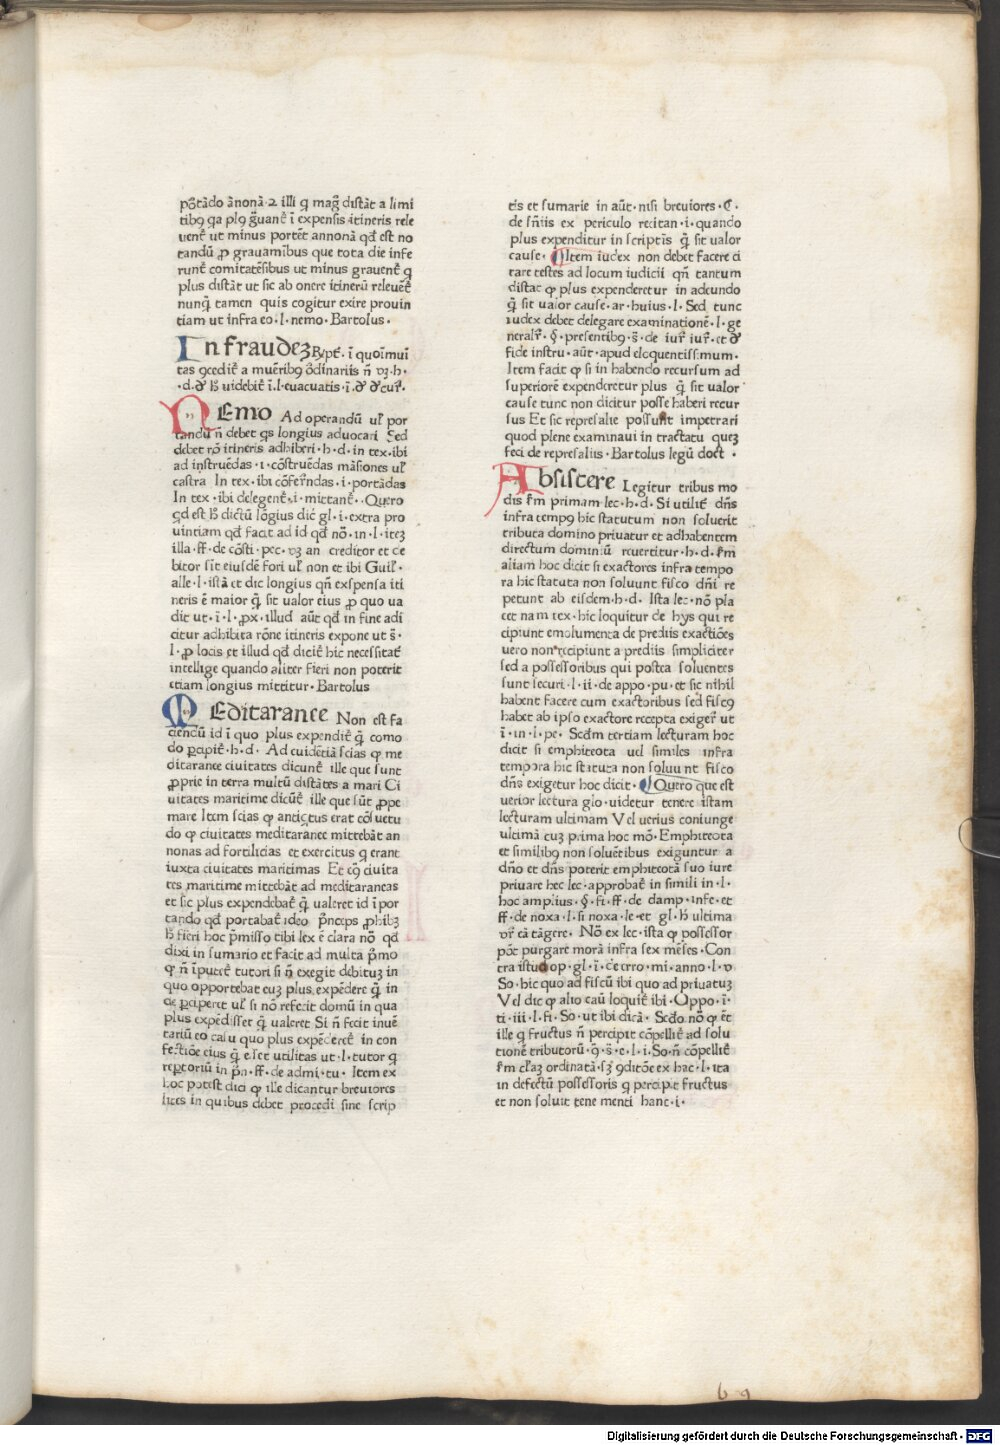 põtãdo ãnonã·2 illi q̄ mag̃ distãt a limi
tibꝯ qa plꝯ g̃uanẽ ĩ expensis itineris rele
uenẽ ut minus portẽt annonã qđ est no
tandũ ꝓ grauamĩbus que tota die infe
runẽ comitatẽsibus ut minus grauenẽ q̄
plus distãt ut sic ab onere itinerũ releuẽẽ
nunq̃ tamen quis cogitur exire prouin
tiam ut infra eo·l·nemo·Bartolus·
In fraudeꝫ Rypẽ·ĩ quoĩmui
tas ꝯcedit̃ a muẽribꝯ õdinariis ñ uꝫ·h·
·d·đ hˀ uidebit̃ ĩ·l·euacuatis·ĩ·đ đcur̃·
Nemo Ad operandũ ul̃ por
tandũ ñ debet qs longius aduocari Sed
debet rõ itineris adhiberi·h·d·in tex·ibi
ad instruẽdas·i·cõstruẽdas mãsiones ul̃
castra In tex·ibi cõfer̃ndas·i·portãdas
In tex·ibi delegenẽ·i·mittanẽ·Quero
qd est hˀ dictũ lõgius dic̃ gl·i·extra pro
uintiam qđ facit ad id qđ nõ·in·l·iteꝫ
illa·ff·de cõsti·pec·uꝫ an creditor et de
bitor sit eiusdẽ fori ul̃ non et ibi Guil̃·
alle·l·istã et dic longius qñ exspensa iti
neris ẽ maior q̃ sit ualor eius ꝓ quo ua
dit ut·ĩ·l·ꝓx·illud aũt qđ in fine adi
citur adhibita rõne itineris expone ut s̃·
l·ꝓ locis et illud qđ dicit̃ hic necessitatẽ
intellige quando aliter fieri non poterit
etiam longius mittitur·Bartolus
Meditarance Non est fa
ciendũ id ĩ quo plus expendit̃ q̃ como
do ꝑcipit̃·h·d· Ad euidẽtiã scias ꝙ me
ditarance ciuitates dicunẽ ille que sunt
ꝓprie in terra multũ distãtes a mari Ci
uitates maritime dicũt̃ ille que sũt ꝓpe
mare Item scias ꝙ antiqtus erat cõsuetu
do ꝙ ciuitates meditarance mittebãt an
nonas ad fortilicias et exercitus q̄ erant
iuxta ciuitates maritimas Et eꝯ ciuita
tes maritime mittebãt ad meditaraneas
et sic plus expendebaẽ q̃ ualeret id ĩ por
tando qđ portabaẽ ideo p̃nceps ꝓhibꝫ
hˀ fieri hoc p̃misso tibi lex ẽ clara nõ qđ
dixi in sumario et facit ad multa p̃mo
ꝙ ñ ĩputeẽ tutori si ñ exegit debituꝫ in
quo opportebat euꝫ plus expẽdere q̃ in
de ꝑciperet ul̃ si nõ refecit domũ in qua
plus expẽdisset q̃ ualeret Si ñ fecit inuẽ
tariũ eo casu quo plus expẽderet̃ in con
fectiõe eius q̃ esset utilitas ut·l·tutor q̄
reꝑtoriũ in p̃n·ff·de admi·tu· Item ex
hoc potest dici ꝙ ille dicantur breuiores
lites in quibus debet procedi sine scrip
tis et sumarie in aũt·nisi breuiores·C·
de sñtiis ex periculo recitan·i·quando
plus expenditur in scriptis q̃ sit ualor
cause· Item iudex non debet facere ci
tare testes ad locum iudicii qñ tantum
distat ꝙ plus expenderetur in adeundo
q̃ sit ualor cause·ar·huius·l· Sed tunc
iudex debet delegare examinationẽ·l·ge
neral̃r·§·presentibꝯ·s̃·de iur̃ iur̃·et đ
fide instru·aũt·apud eloquentissimum·
Item facit ꝙ si in habendo recursum ad
superiorẽ expenderetur plus q̃ sit ualor
cause tunc non dicitur posse haberi recur
sus Et sic represalie possunt impetrari
quod plene examinaui in tractatu queꝫ
feci de represaliis·Bartolus legũ doct·
Absistere Legitur tribus mo
dis f̃m primam lec·h·d· Si utilit̃ dñs
infra tempꝯ hic statutum non soluerit
tributa domino priuatur et adhabentem
directum dominiũ reuertitur·h·d·f̃m
aliam hoc dicit si exactores infra tempo
ra hic statuta non soluunt fisco dñi re
petunt ab eisdem·h·d· Ista lec·nõ pla
cet nam tex·hic loquitur de hys qui re
cipiunt emolumenta de prediis exactiões
uero non recipiunt a prediis simpliciter
sed a possessoribus qui postea soluentes
sunt securi·l·ii·de appo·pu·et sic nihil
habent facere cum exactoribus sed fiscꝯ
habet ab ipso exactore recepta exiger̃ ut
ĩ·in·l·pe· Scđm tertiam lecturam hoc
dicit si emphiteota uel similes infra
tempora hic statuta non soluunt fisco
dñs exigetur hoc dicit· Quero que est
uerior lectura glo·uidetur tenere istam
lecturam ultimam Vel uerius coniunge
ultimã cuꝫ prima hoc mõ·Emphiteota
et similibꝯ non soluẽtibus exiguntur a
dño et dñs poterit emphiteotã suo iure
priuare hec lec·approbaẽ in simili in·l·
hoc amplius·§·fi·ff·de damp·infe·et
ff·de noxa·l·si noxa·le·et gl·hˀ ultima
ur̃ eã tãgere· Nõ ex lec·ista ꝙ possessor
põt purgare morã infra sex mẽses·Con
tra istud op·gl·ĩ·de erro·mi·anno·l·v
So·hic quo ad fiscũ ibi quo ad priuatuꝫ
Vel dic ꝙ alio caũ loquit̃ ibi·Oppo·ĩ·
ti·iii·l·fi·So·ut ibi dicã·Scđo nõ ꝙ ẽt
ille q̄ fructus ñ percipit cõpellit̃ ad solu
tionẽ tributorũ·q̃·s̃·e·l·i·So·ñ cõpellit̃
f̃m cl̃aꝫ ordinatã·sꝫ ꝯditõe ex hac·l·ita
in defectũ possessoris q̄ percipit fructus
et non soluit tene menti hanc·i·
b 9
Digitalisierung gefördert durch die Deutsche Forschungsgemeinschaft · DFG